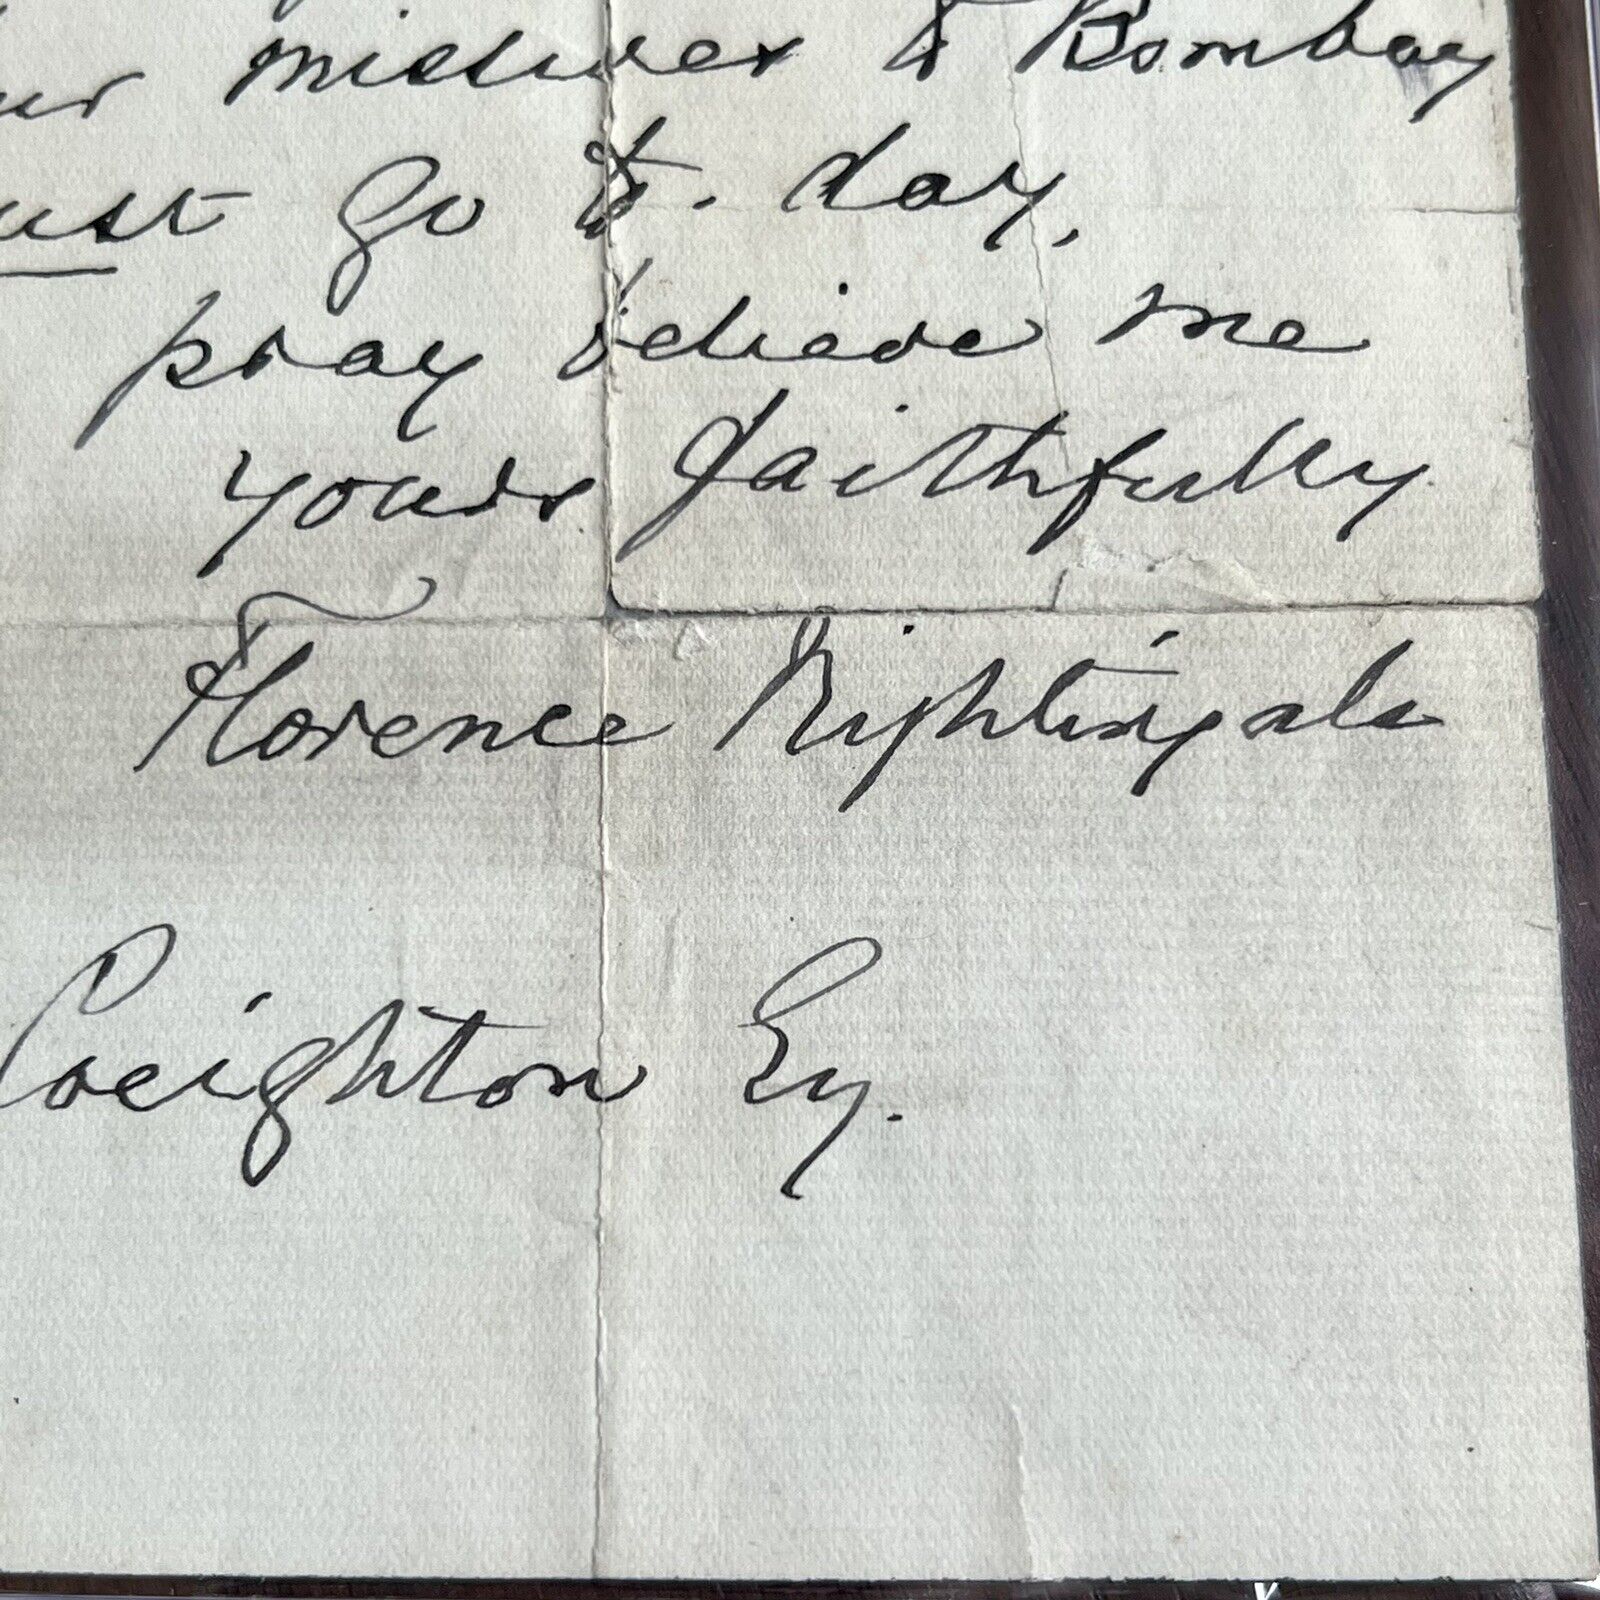 to Bombay
ust go to-day,
pray believe me
yours faithfully
Florence Nightingale
Creighton Esq.